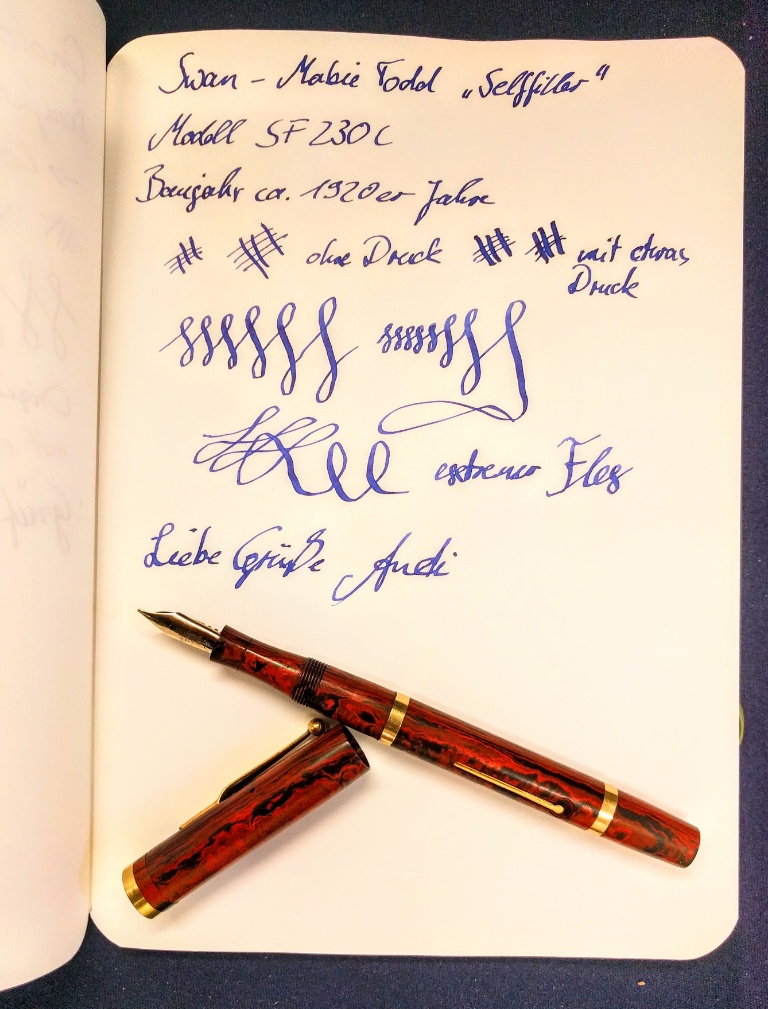 Swan - Mabie Todd „Selffiller"
Modell SF 230 C
Baujahr ca. 1920er Jahre
ohne Druck mit etwas
Druck
extremer Flex
Liebe Grüße Andi